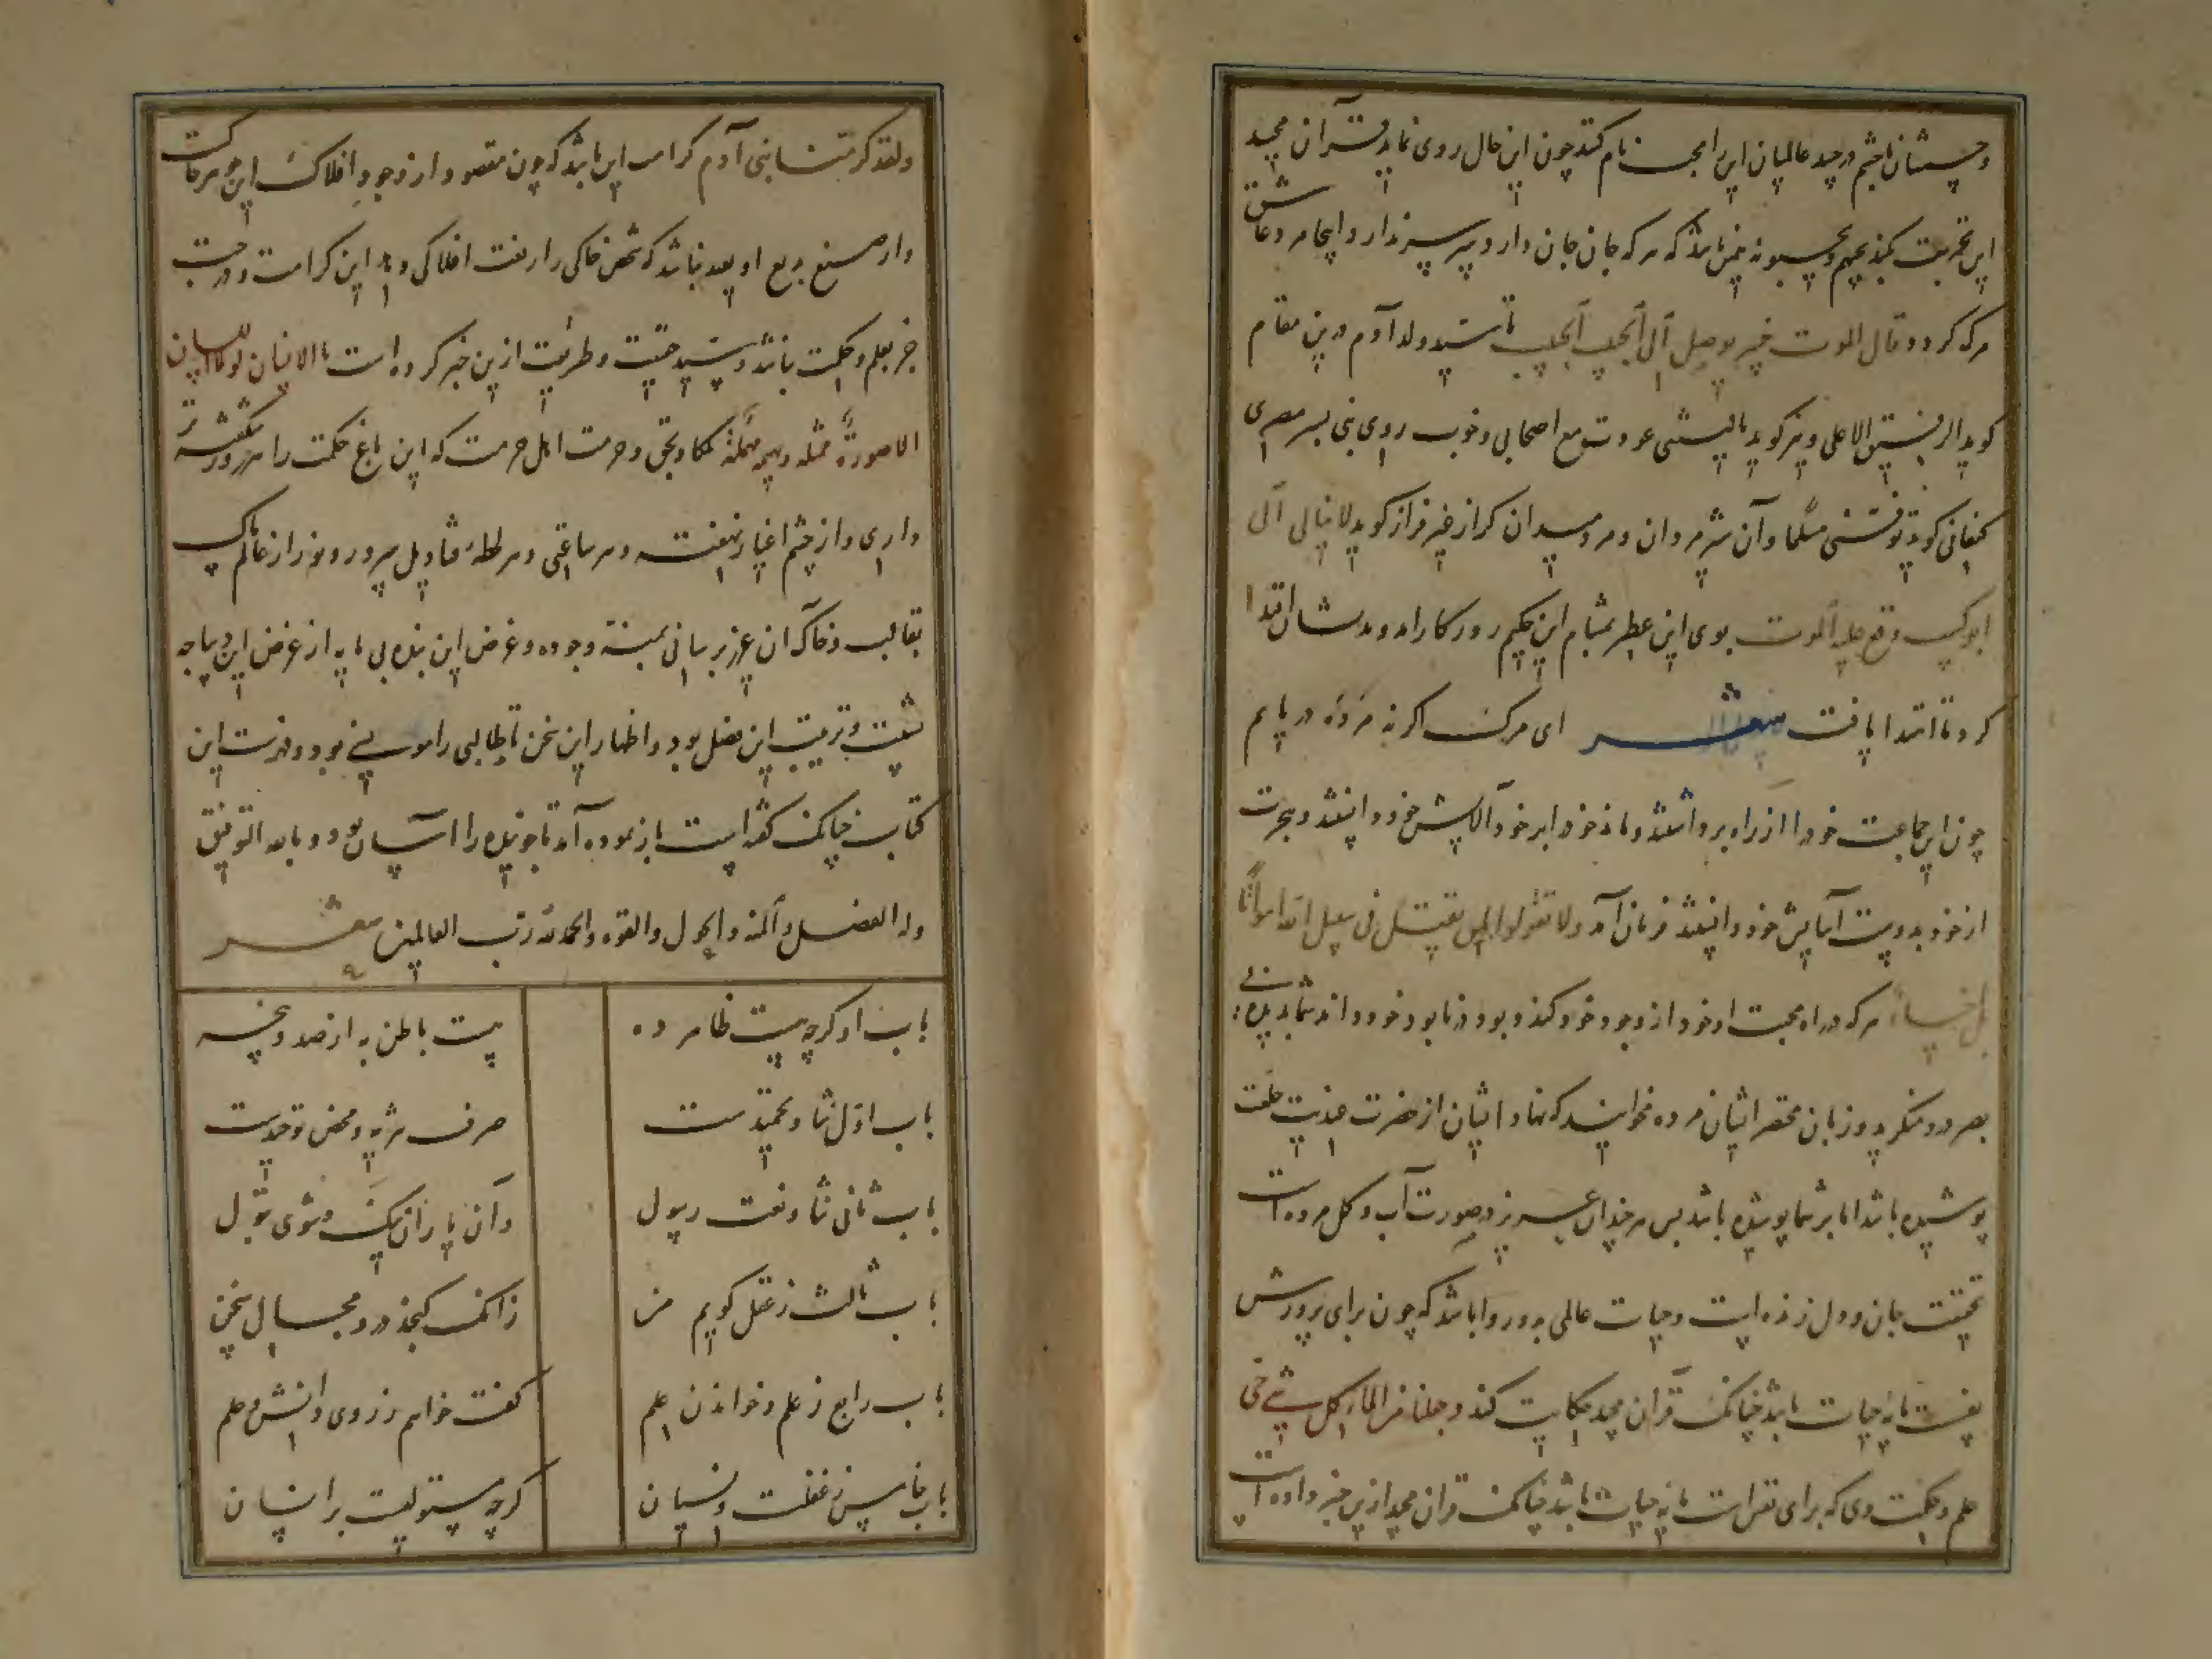 و چستان با جثه در چید عالمیان این را محبت نام کنند چون این حال روی نماید قرآن مجید
این تخریبت کند یحبهم و یحبونه چنین باشد که هر که جان جان دارد پسر سپر ندارد و اینجا مر دعاش
مرک کردد و قال الموت خیر یوصل الی الحبیب الحبیب تا سید ولد آدم درین مقام
کوید الرفیق الاعلی و نیز کوید یا لیتنی غودرت مع اصحابی و خوب روی بنی بسر مصری
کنعانی کوید توفنی مسلما و آن شیر مردان و مرد میدان کرار غیر فرار کوید لا ابالی الی
ابو کم وقع علیه الموت بوی این عطر بمشام این حکیم روزکار آمد و بدیشان اقتدا
کرد تا اقتدا یافت شعر ای مرک اکر نه مرده در یابم
چون این جماعت خود را از راه برداشتند و ماند خود ابر خود آلایش خود دانستند و هجرت
از خود بدوست آسایش خود دانستند فرمان آمد ولا تقولوا لمن یقتل فی سبیل الله امواتا
بل احیاء هر که در راه محبت او خود از وجود خود کند و بود و نابود خود داند شما بدیده بی
بصر درو منکرید و زبان محقر ایشان مرده مخوانید که نهاد ایشان از حضرت عندیت خلعت
پوشیده باشد اما بر شما پوشیده باشد پس هر چند آن عزیز در صورت آب و کل مرده است
بحقیقت جان و دل زنده است و حیات عالمی بدو روا باشد که چون برای پرورش
نفست مایه حیات باشد چنانک قرآن مجید حکایت کند و جعلنا من الماء کل شیء حی
علم و حکمت وی که برای تقرات مایه حیات باشد چنانک قران مجید ازین خبر داده است
ولقد کرمنا بنی آدم کرامت این باشد که چون مقصود از وجود افلاک این جوهر خاکست
و از صنع بدیع او بعید نباشد که شخص خاکی را رفعت افلاکی دهد این کرامت و مرتبت
جز بعلم و حکمت نباشد و سید حقیقت و طریقت ازین خبر کرده است ما الانسان لولا اللسان
الا صورة ممثلة و بهیمة مهملة ملکا بحق و حرمت اهل حرمت که این باغ حکمت را هر روز شکفته تر
داری و از چشم اغیار نهفته و هر ساعتی و هر لحظه قنادیل سرور و نور از عالم پاک
بقالب و خاک آن عزیز برسانی بمنه وجوده و غرض این بنده بی مایه از غرض این دیباجه
نسبت و ترتیب این فضل بود و اظهار این سخن تا طالبی را مونسی بود و فهرست این
کتاب چنانک گفته است باز نموده آمد تا جوینده را آسان بود و بالله التوفیق
وله الفضل والمنة والحول والقوة والحمد لله رب العالمین شعر
باب او کرچه هست ظاهر ده بیت باطن به از صد و نه
باب اول ثنا و تحمیدست صرف تنزیه و محض توحیدست
باب ثانی ثنا و نعت رسول وان یاران نیک و شوی بتول
باب ثالث ز عقل کویم من زانک کنجد درو مجال سخن
باب رابع ز علم و خواندن علم گفت خواهم ز روی دانش و حلم
باب خامس ز غفلت و نسیان کرچه مستولیست بر انسان